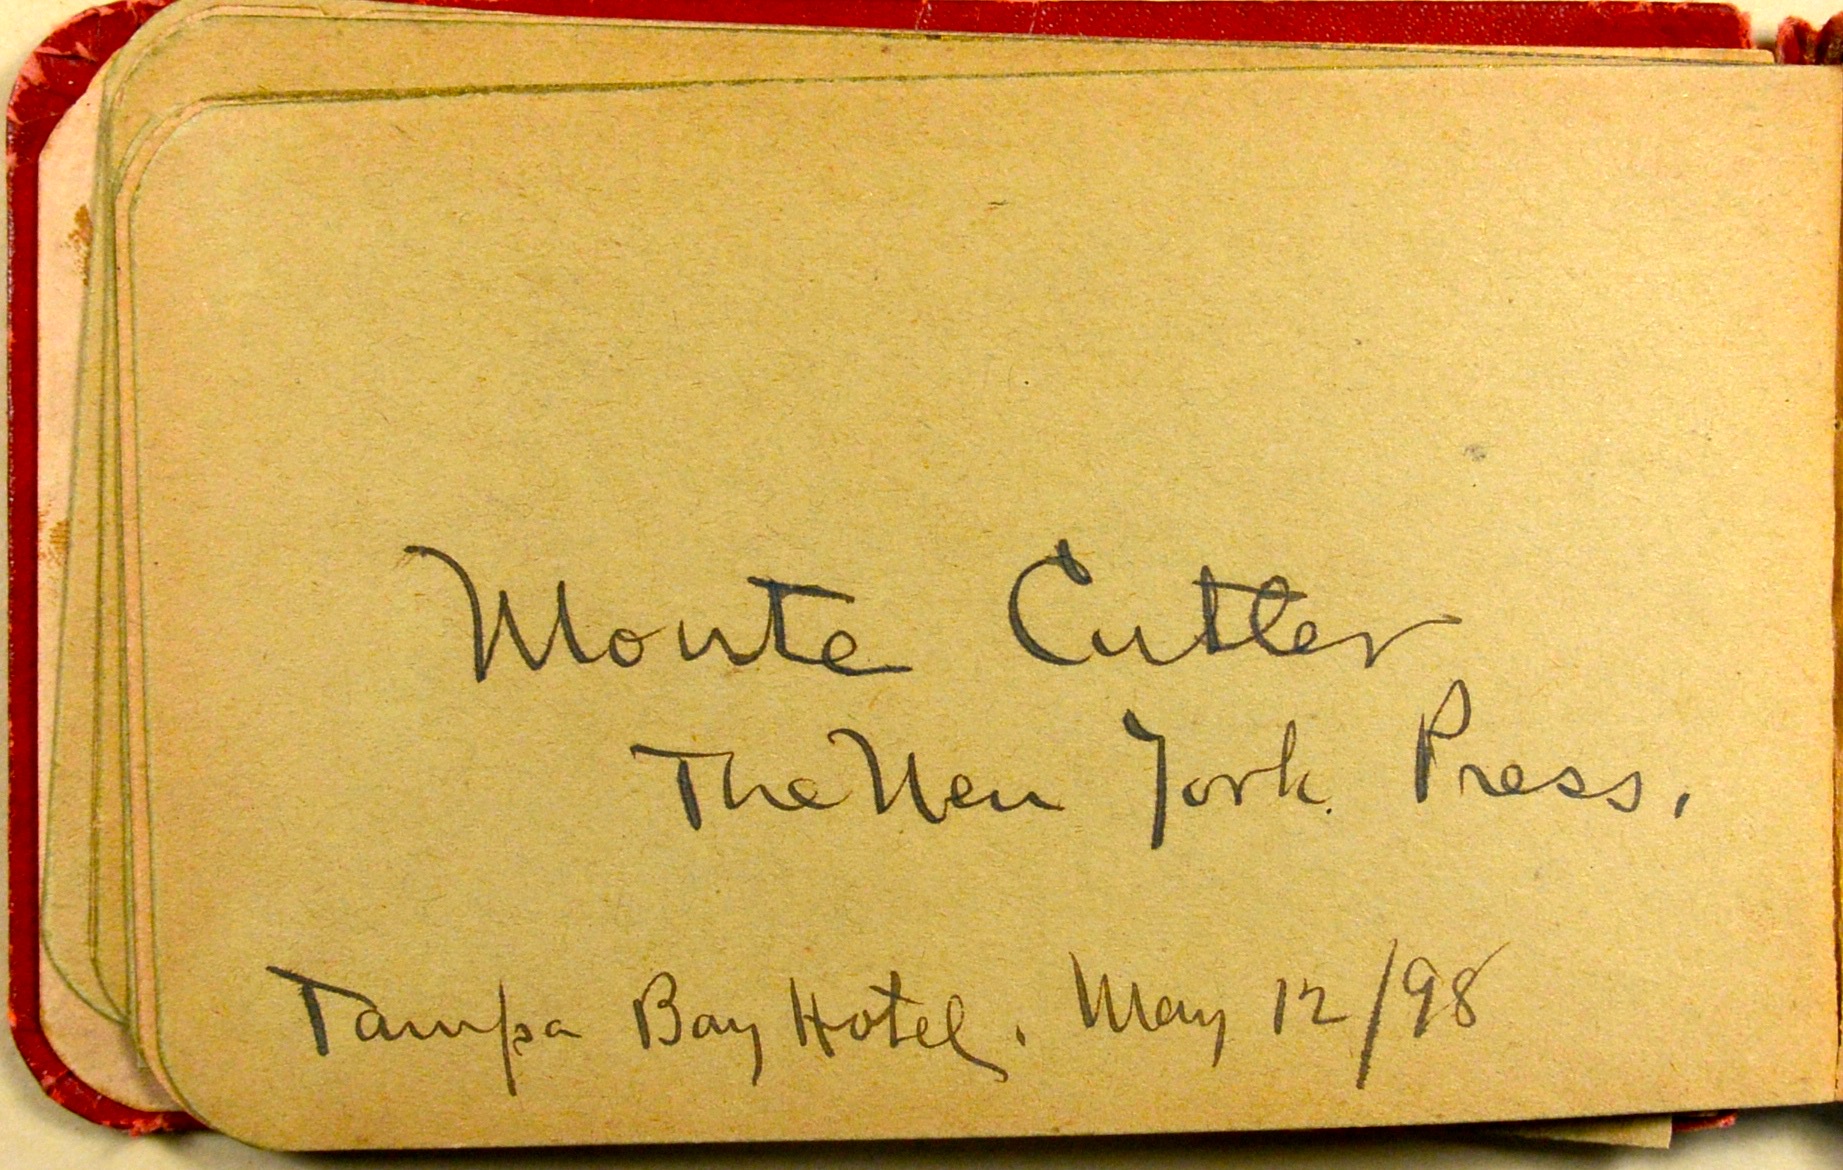 Monte Cutler
The New York Press.
Tampa Bay Hotel. May 12/98